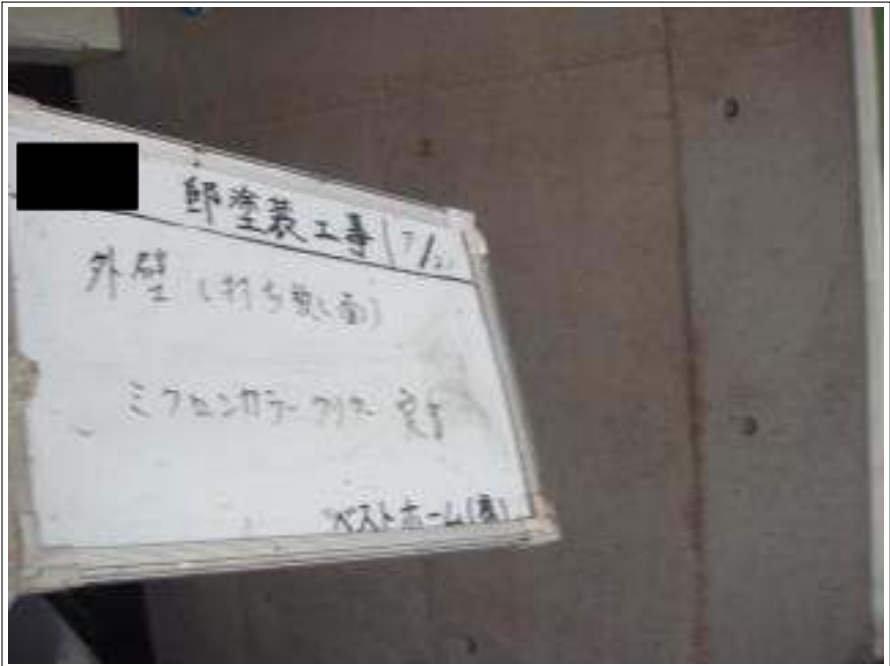 邸塗装工事 (7/21)
外壁 (打ち放し面)
ミクロンカラークリヤー 完了
ベストホーム(株)